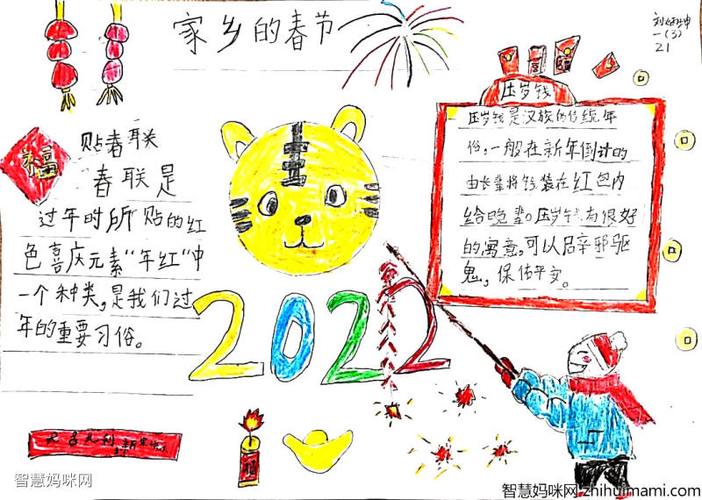 家乡的春节
一(3)
21
福
贴春联
春联是
过年时所贴的红
色喜庆元素“年红”中
一个种类,是我们过
年的重要习俗。
压岁钱
压岁钱是汉族的传统年
俗,一般在新年倒计时
由长辈将钱装在红包内
给晚辈。压岁钱有很好
的寓意,可以辟邪驱
鬼,保佑平安。
2022
智慧妈咪网
智慧妈咪网 zhihuimami.com